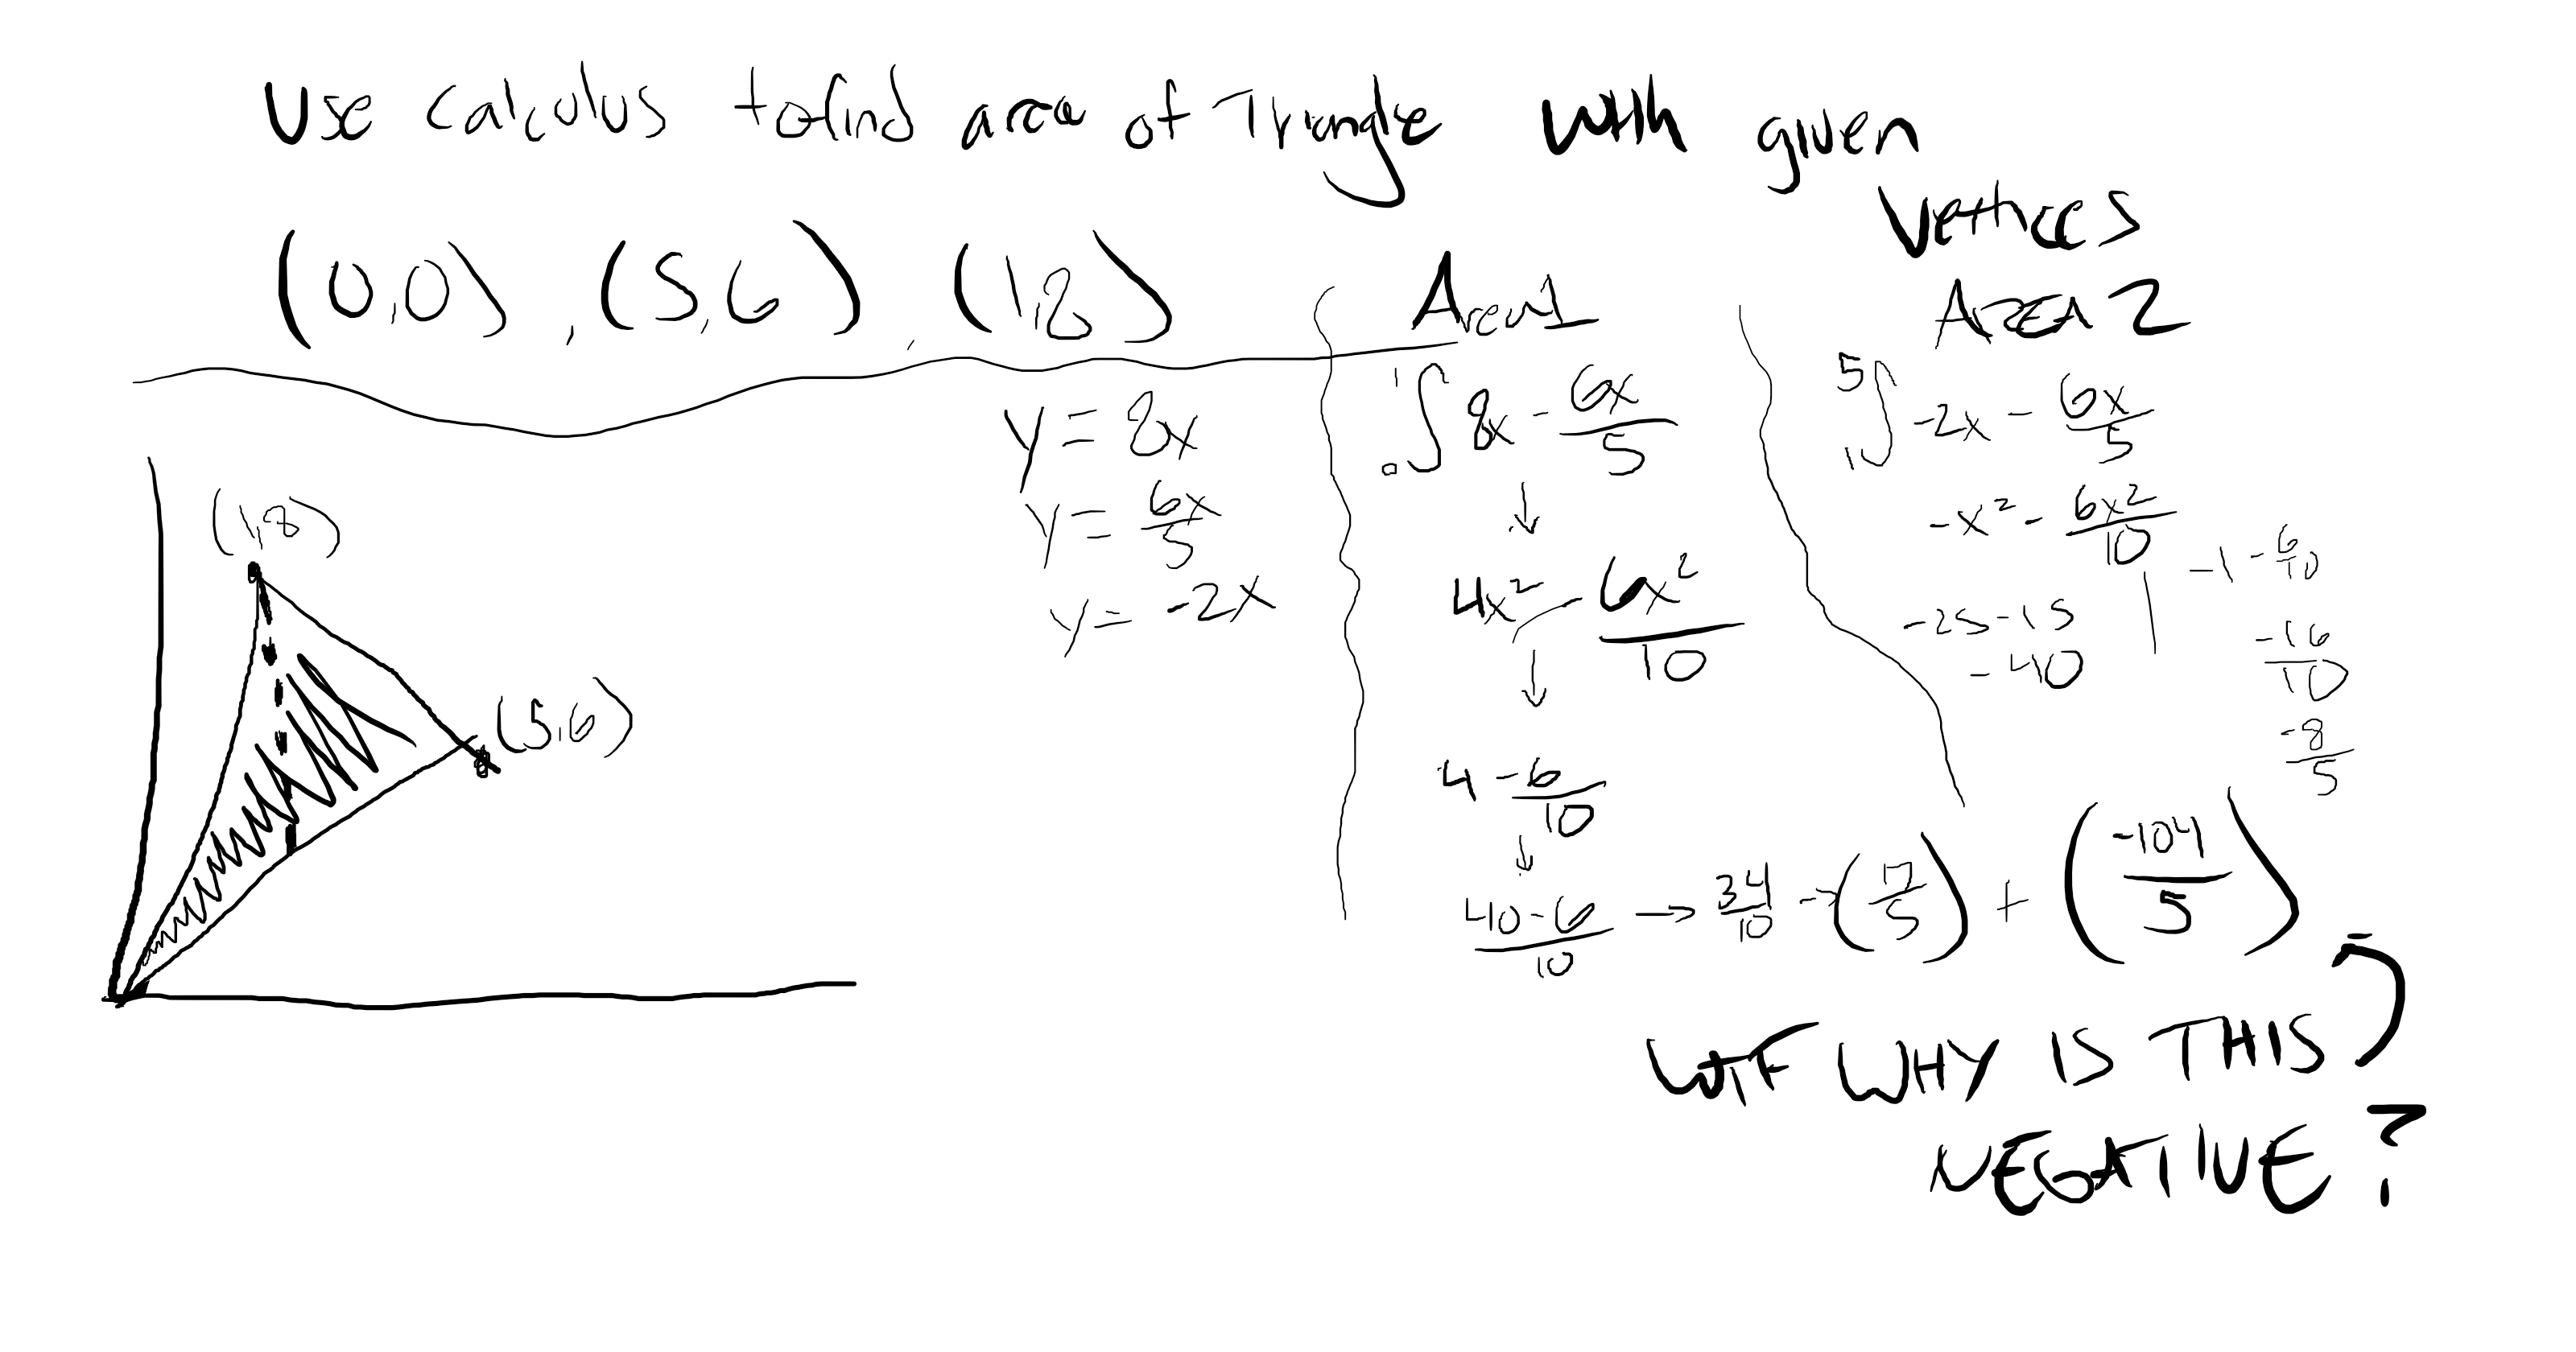 Use calculus to find area of Triangle with given
Vertices
(0,0), (5,6), (1,8)
Area 1
AREA 2
y = 8x
y = 6x/5
y = -2x
1
0∫ 8x - 6x/5
↓
4x² - 6x²/10
↓
4 - 6/10
↓
40-6/10 → 34/10 → (17/5) + (-104/5)
5
1∫ -2x - 6x/5
-x² - 6x²/10
-25-15 | -1 - 6/10
-40
-16/10
-8/5
(1,8)
(5,6)
WTF WHY IS THIS
NEGATIVE?